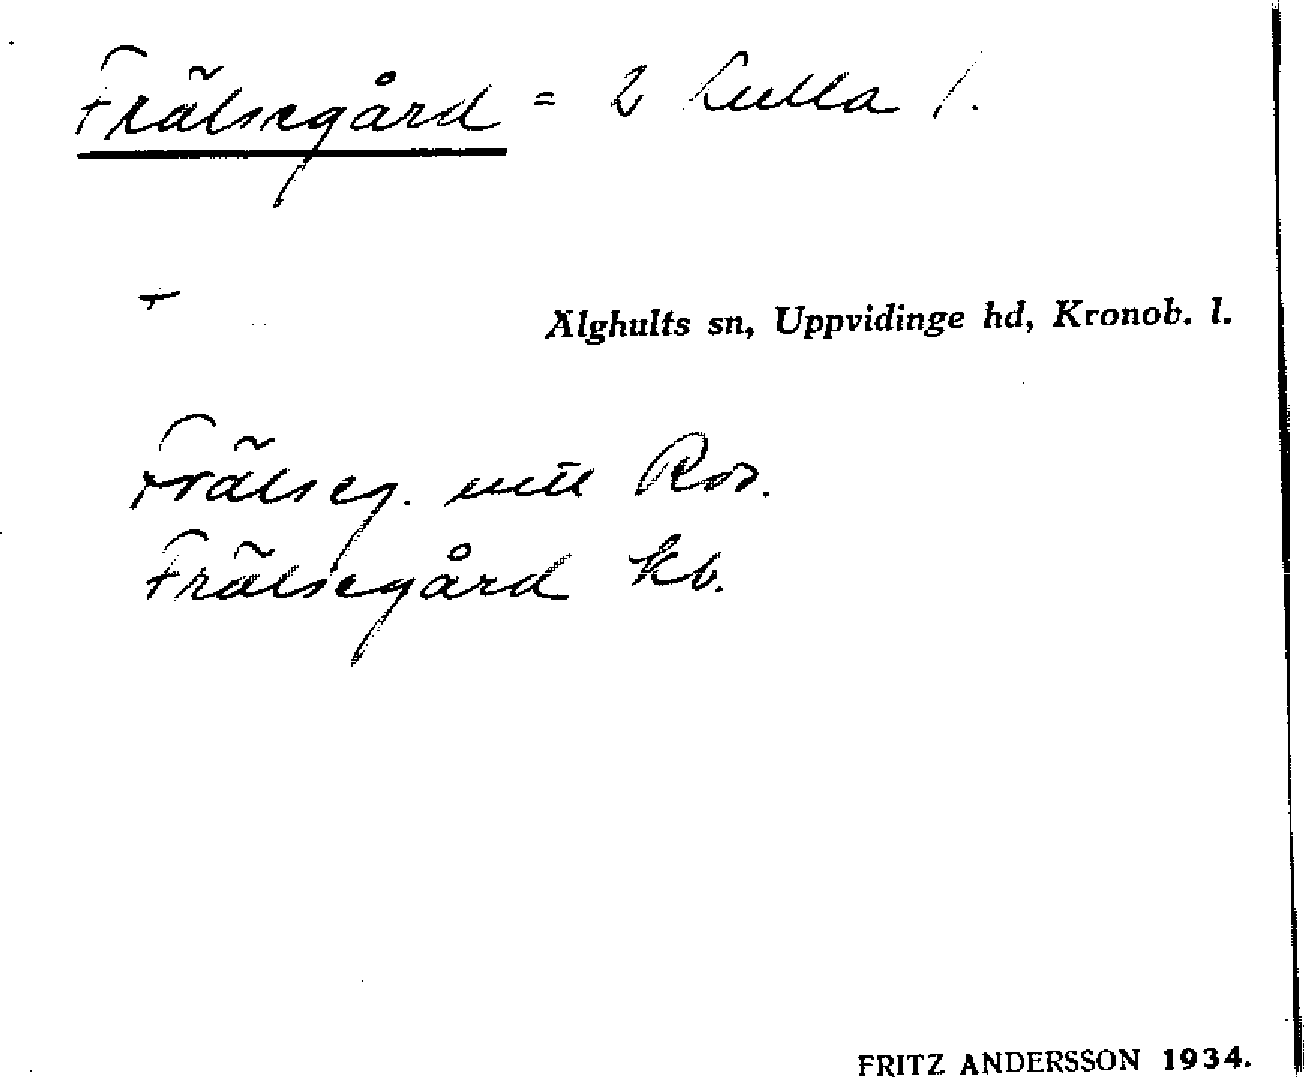 Frälsegård = 2 Kulla 1.
Älghults sn, Uppvidinge hd, Kronob. l.
Frälseg. Ros.
Frälsegård kb.
FRITZ ANDERSSON 1934.